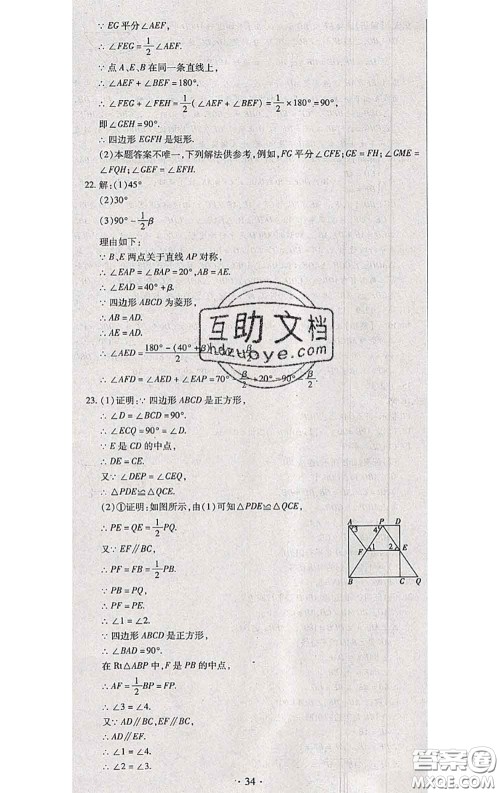 ∵ EG 平分∠AEF,
∴ ∠FEG=1/2∠AEF.
∵ 点 A、E、B 在同一条直线上,
∴ ∠AEF+∠BEF=180°.
∴ ∠FEG+∠FEH=1/2(∠AEF+∠BEF)=1/2×180°=90°,
即∠GEH=90°.
∴ 四边形 EGFH 是矩形.
(2)本题答案不唯一,下列解法供参考,例如,FG 平分∠CFE;GE=FH;∠GME
=∠FQH;∠GEF=∠EFH.
22.解:(1)45°
(2)30°
(3)90°-1/2β
理由如下:
∵ B、E 两点关于直线 AP 对称,
∴ ∠EAP=∠BAP=20°,AE=AB.
∴ ∠EAD=40°+β.
∵ 四边形 ABCD 为菱形,
∴ AB=AD.
∴ AE=AD.
∴ ∠AED=180°-(40°+β)/2=70°-β/2
∴ ∠AFD=∠AED+∠EAP=70°-β/2+20°=90°-β/2.
23.(1)证明:∵ 四边形 ABCD 是正方形,
∴ ∠D=∠BCD=90°.
∴ ∠ECQ=90°=∠D.
∵ E 是 CD 的中点,
∴ DE=CE.
又∵ ∠DEP=∠CEQ,
∴ △PDE≌△QCE.
(2)①证明:如图所示,由(1)可知△PDE≌△QCE,
∴ PE=QE=1/2PQ.
又∵ EF∥BC,
∴ PF=FB=1/2PB.
∵ PB=PQ,
∴ PF=PE.
∴ ∠1=∠2.
∵ 四边形 ABCD 是正方形,
∴ ∠BAD=90°.
在 Rt△ABP 中,F 是 PB 的中点,
∴ AF=1/2BP=FP.
∴ ∠3=∠4.
又∵ AD∥BC,EF∥BC,
∴ AD∥EF.
∴ ∠1=∠4.
∴ ∠2=∠3.
A P D
3 4
F 1 2 E
B C Q
互助文档
hdzuoye.com
· 34 ·
答案圈
MXQE.COM